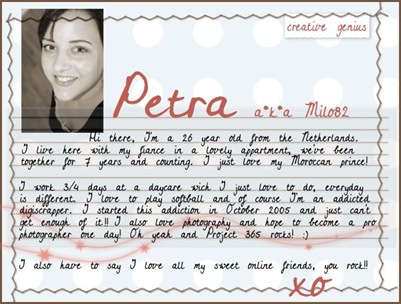 creative genius
Petra a*k*a Milo82
Hi there, I'm a 26 year old from the Netherlands.
I live here with my fiance in a lovely appartment, we've been
together for 7 years and counting. I just love my Moroccan prince!
I work 3/4 days at a daycare wich I just love to do, everyday
is different. I love to play softball and of course I'm an addicted
digiscrapper. I started this addiction in October 2005 and just can't
get enough of it!! I also love photography and hope to become a pro
photographer one day! Oh yeah and Project 365 rocks! :)
I also have to say I love all my sweet online friends, you rock!!
xo